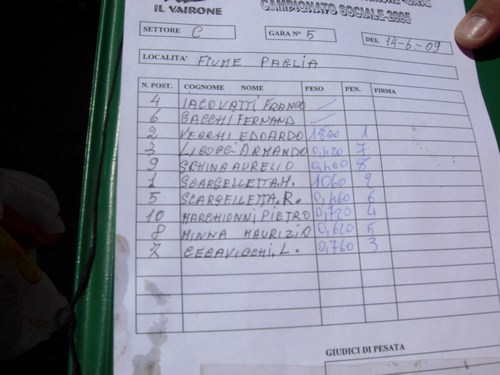 IL VAIRONE
CAMPIONATO SOCIALE 2005
SETTORE C GARA N° 5 DEL 14-6-09
LOCALITA' FIUME PAGLIA
N. POST. COGNOME NOME PESO PEN. FIRMA
4 IACOVATTI FRANCO
6 SACCHI FERNAND
2 VECCHI EDOARDO 1
3 ARMANDO 7
9 SCHINA AURELIO 8
1 SCARGELLETTA.M. 1060 2
5 SCARGELLETTA.R. 6
10 MARCHIONNI PIETRO 0,720 4
8 MINNA MAURIZIO 0,620 5
7 L. 0,760 3
GIUDICI DI PESATA